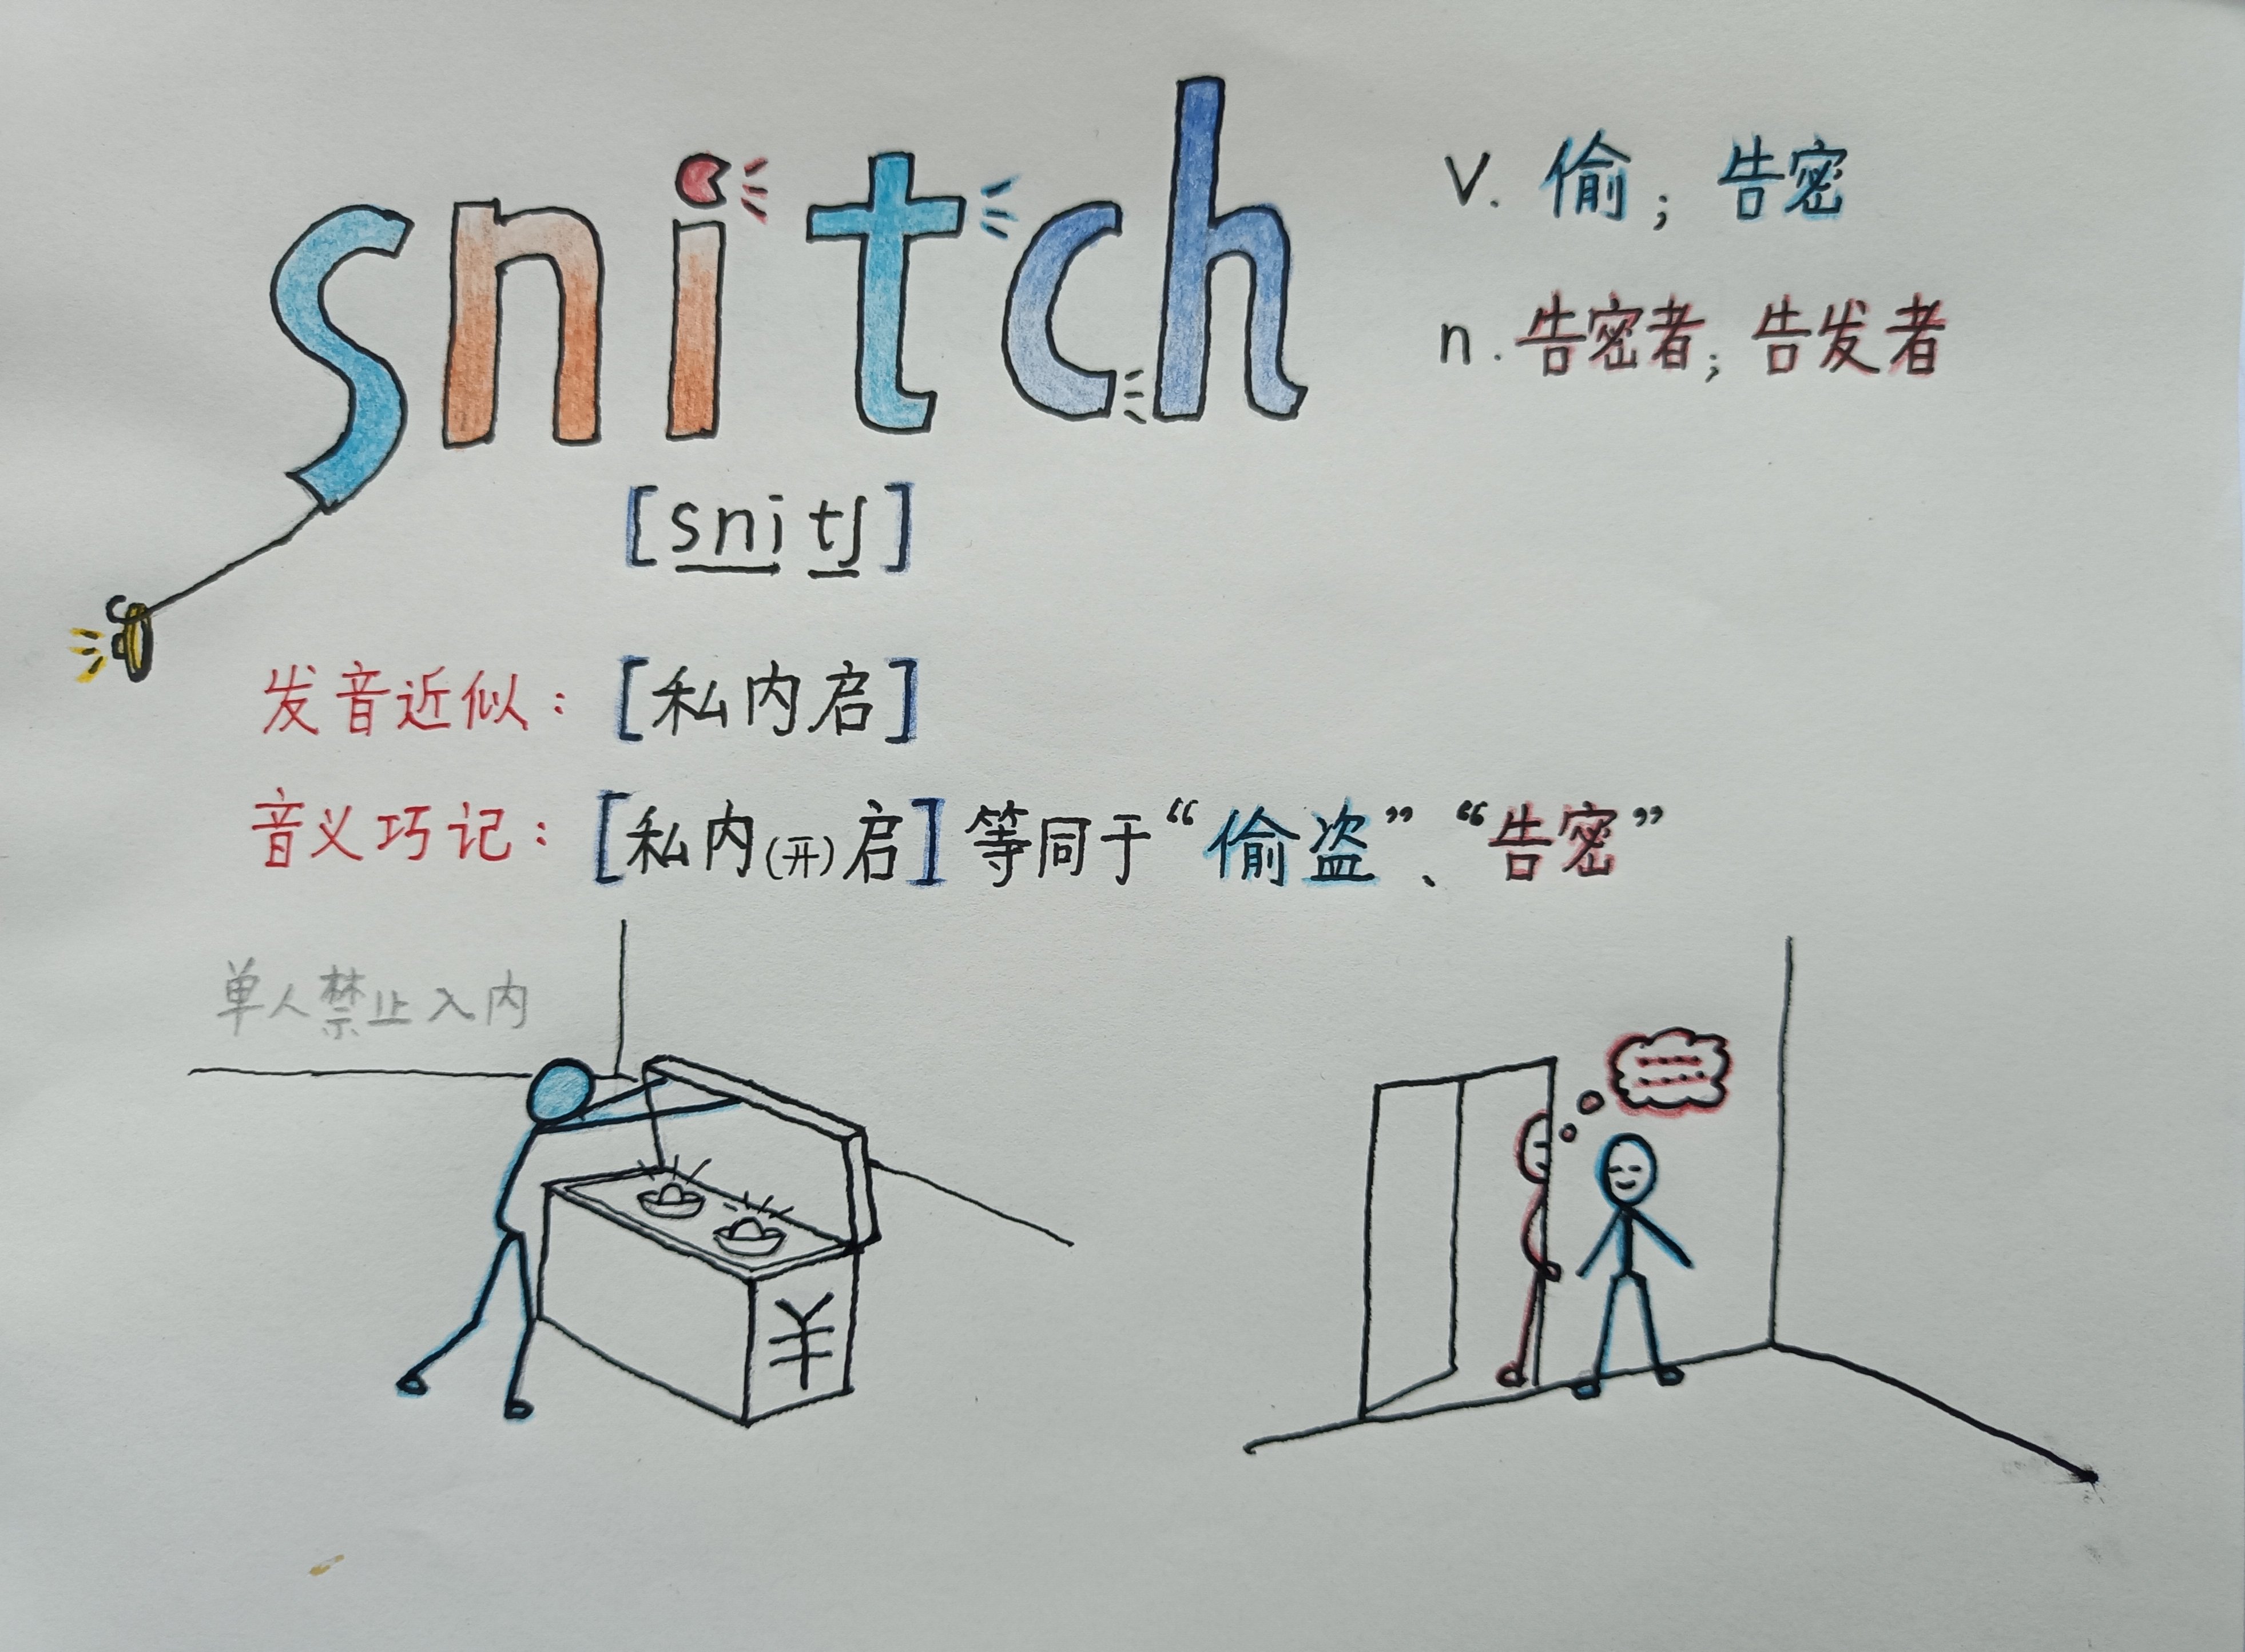 snitch
v. 偷；告密
n. 告密者；告发者
[snitʃ]
发音近似：[私内启]
音义巧记：[私内(开)启]等同于“偷盗”、“告密”
单人禁止入内
¥